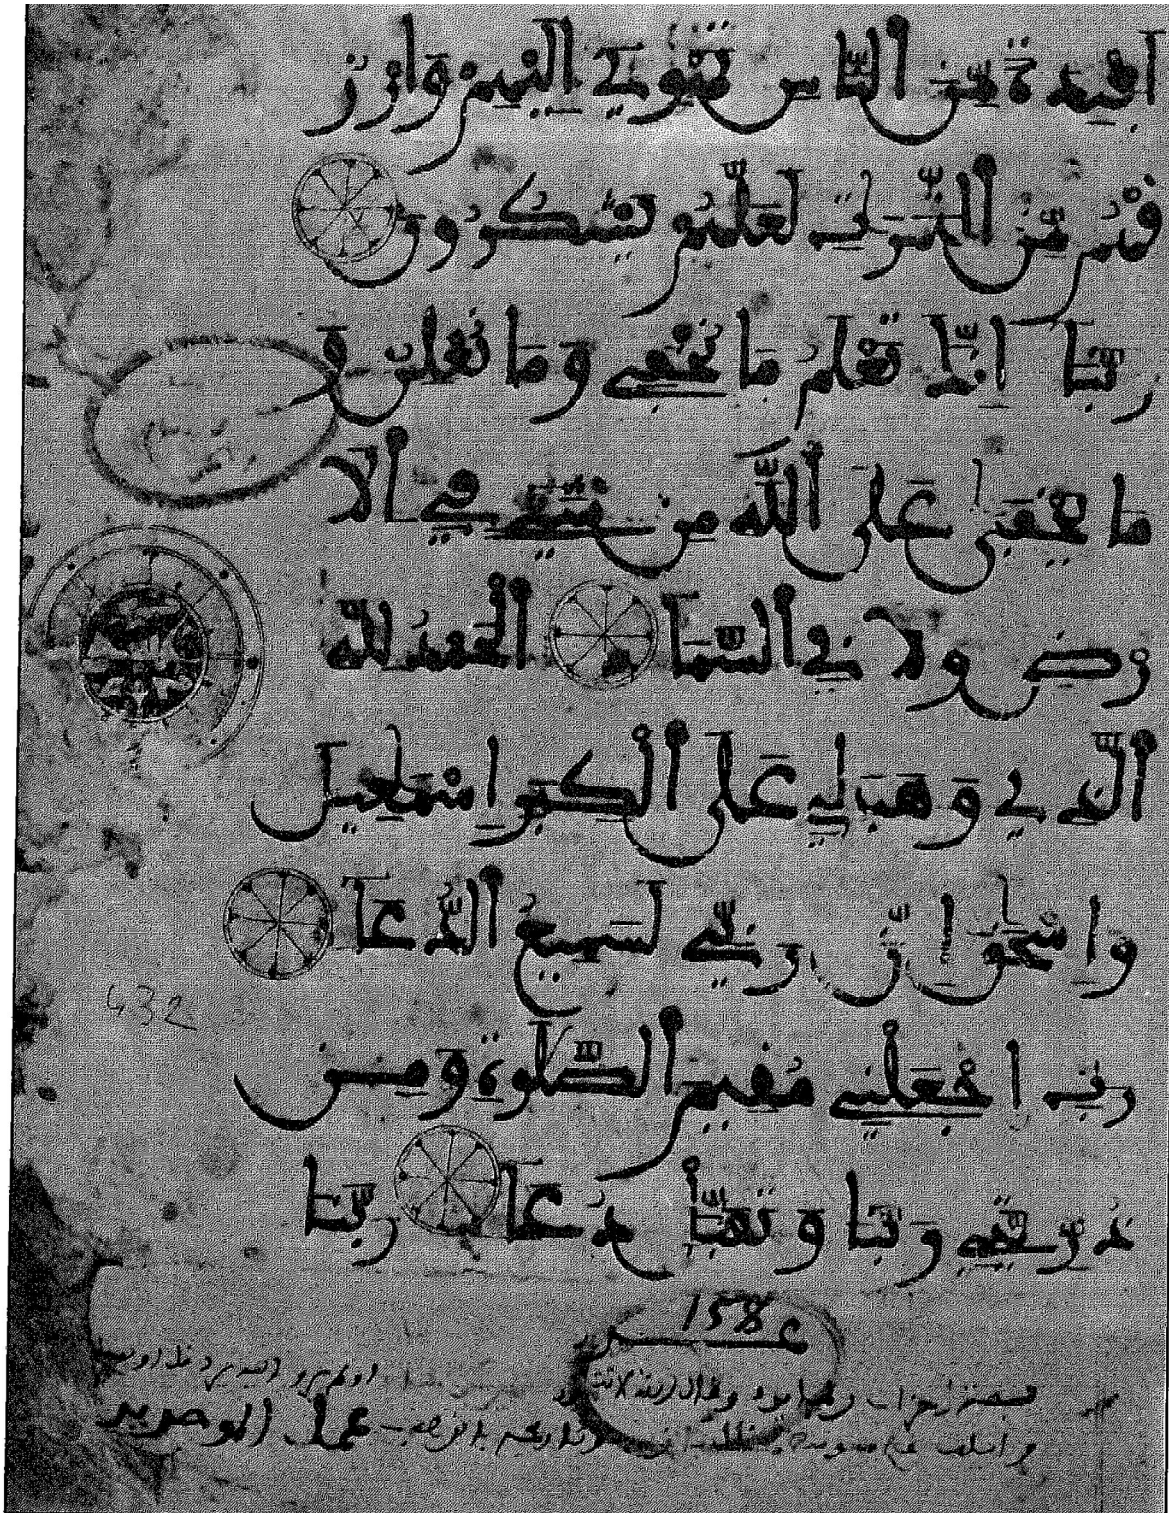 افـٔدة من الناس تهوي اليهم وارز
قهم من الثمرت لعلهم يشكرون
ربنا انك تعلم ما نخفي وما نعلن و
ما يخفى على الله من شيء في الا
رض ولا في السما الحمد لله
الذي وهب لي على الكبر اسمعيل
واسحق ان ربي لسميع الدعا
رب اجعلني مقيم الصلوة ومن
ذريتي ربنا وتقبل دعا ربنا
432
158
عمل الموحدين